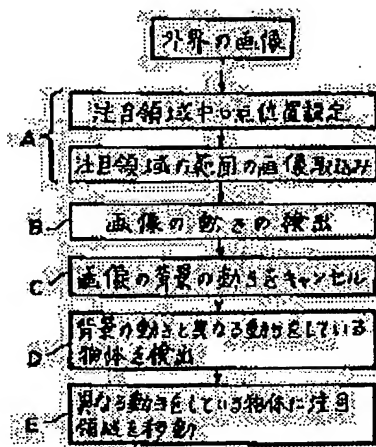 外界の画像
A
注目領域中心点位置設定
注目領域の範囲の画像取込み
B
画像の動きの検出
C
画像の背景の動きをキャンセル
D
背景の動きと異なる動きをしている
物体を検出
E
異なる動きをしている物体に注目
領域を移動